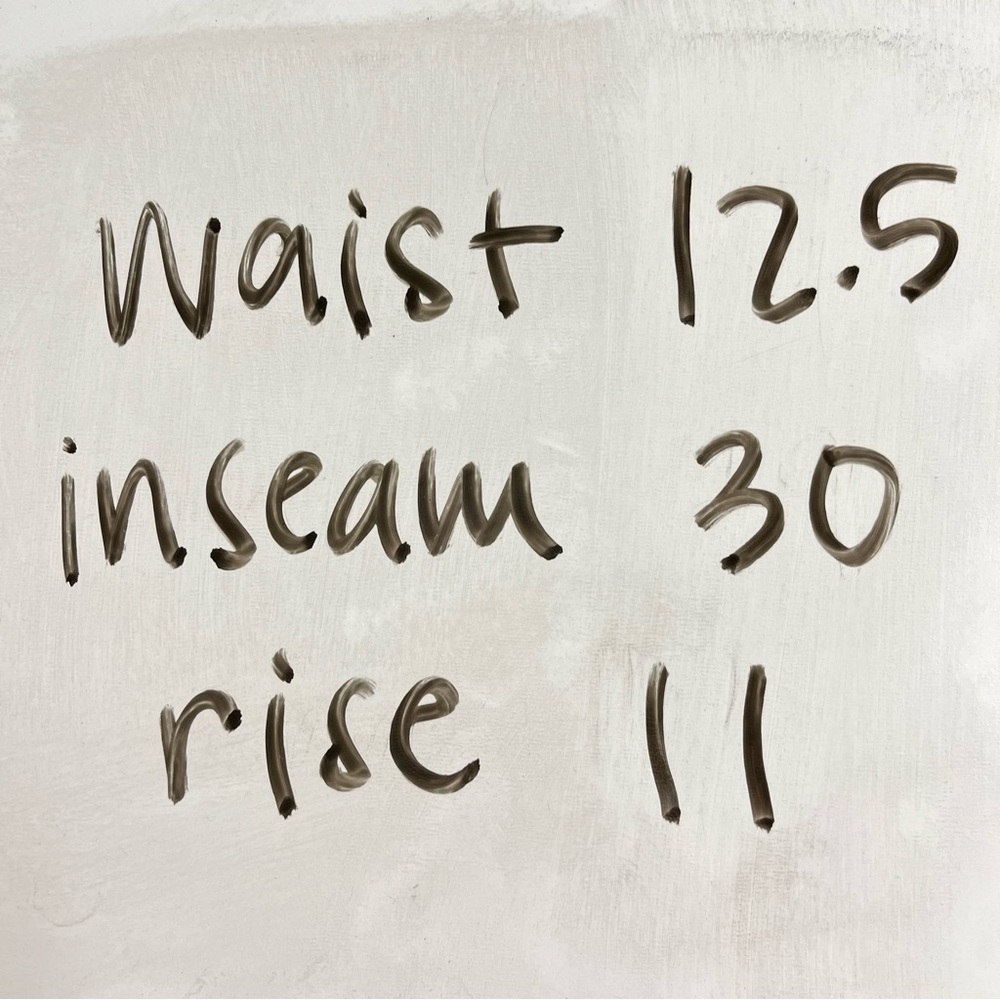 waist 12.5
inseam 30
rise 11